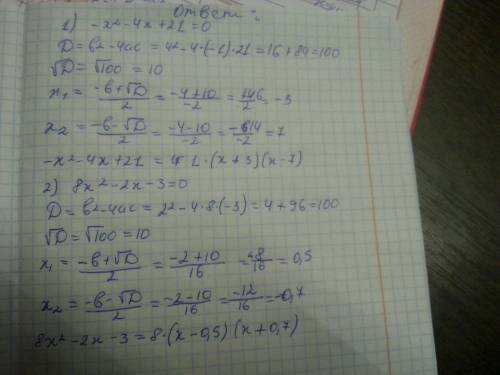 ответ:
1) -x²-4x+21=0
D=b²-4ac=4²-4·(-1)·21=16+84=100
√D=√100=10
x₁=(-b+√D)/2=(-4+10)/-2= /2=-3
x₂=(-b-√D)/2=(-4-10)/-2= /-2=7
-x²-4x+21= 1·(x+3)(x-7)
2) 8x²-2x-3=0
D=b²-4ac=2²-4·8·(-3)=4+96=100
√D=√100=10
x₁=(-b+√D)/2=(-2+10)/16=8/16=0,5
x₂=(-b-√D)/2=(-2-10)/16=-12/16=-0,7
8x²-2x-3=8·(x-0,5)(x+0,7)